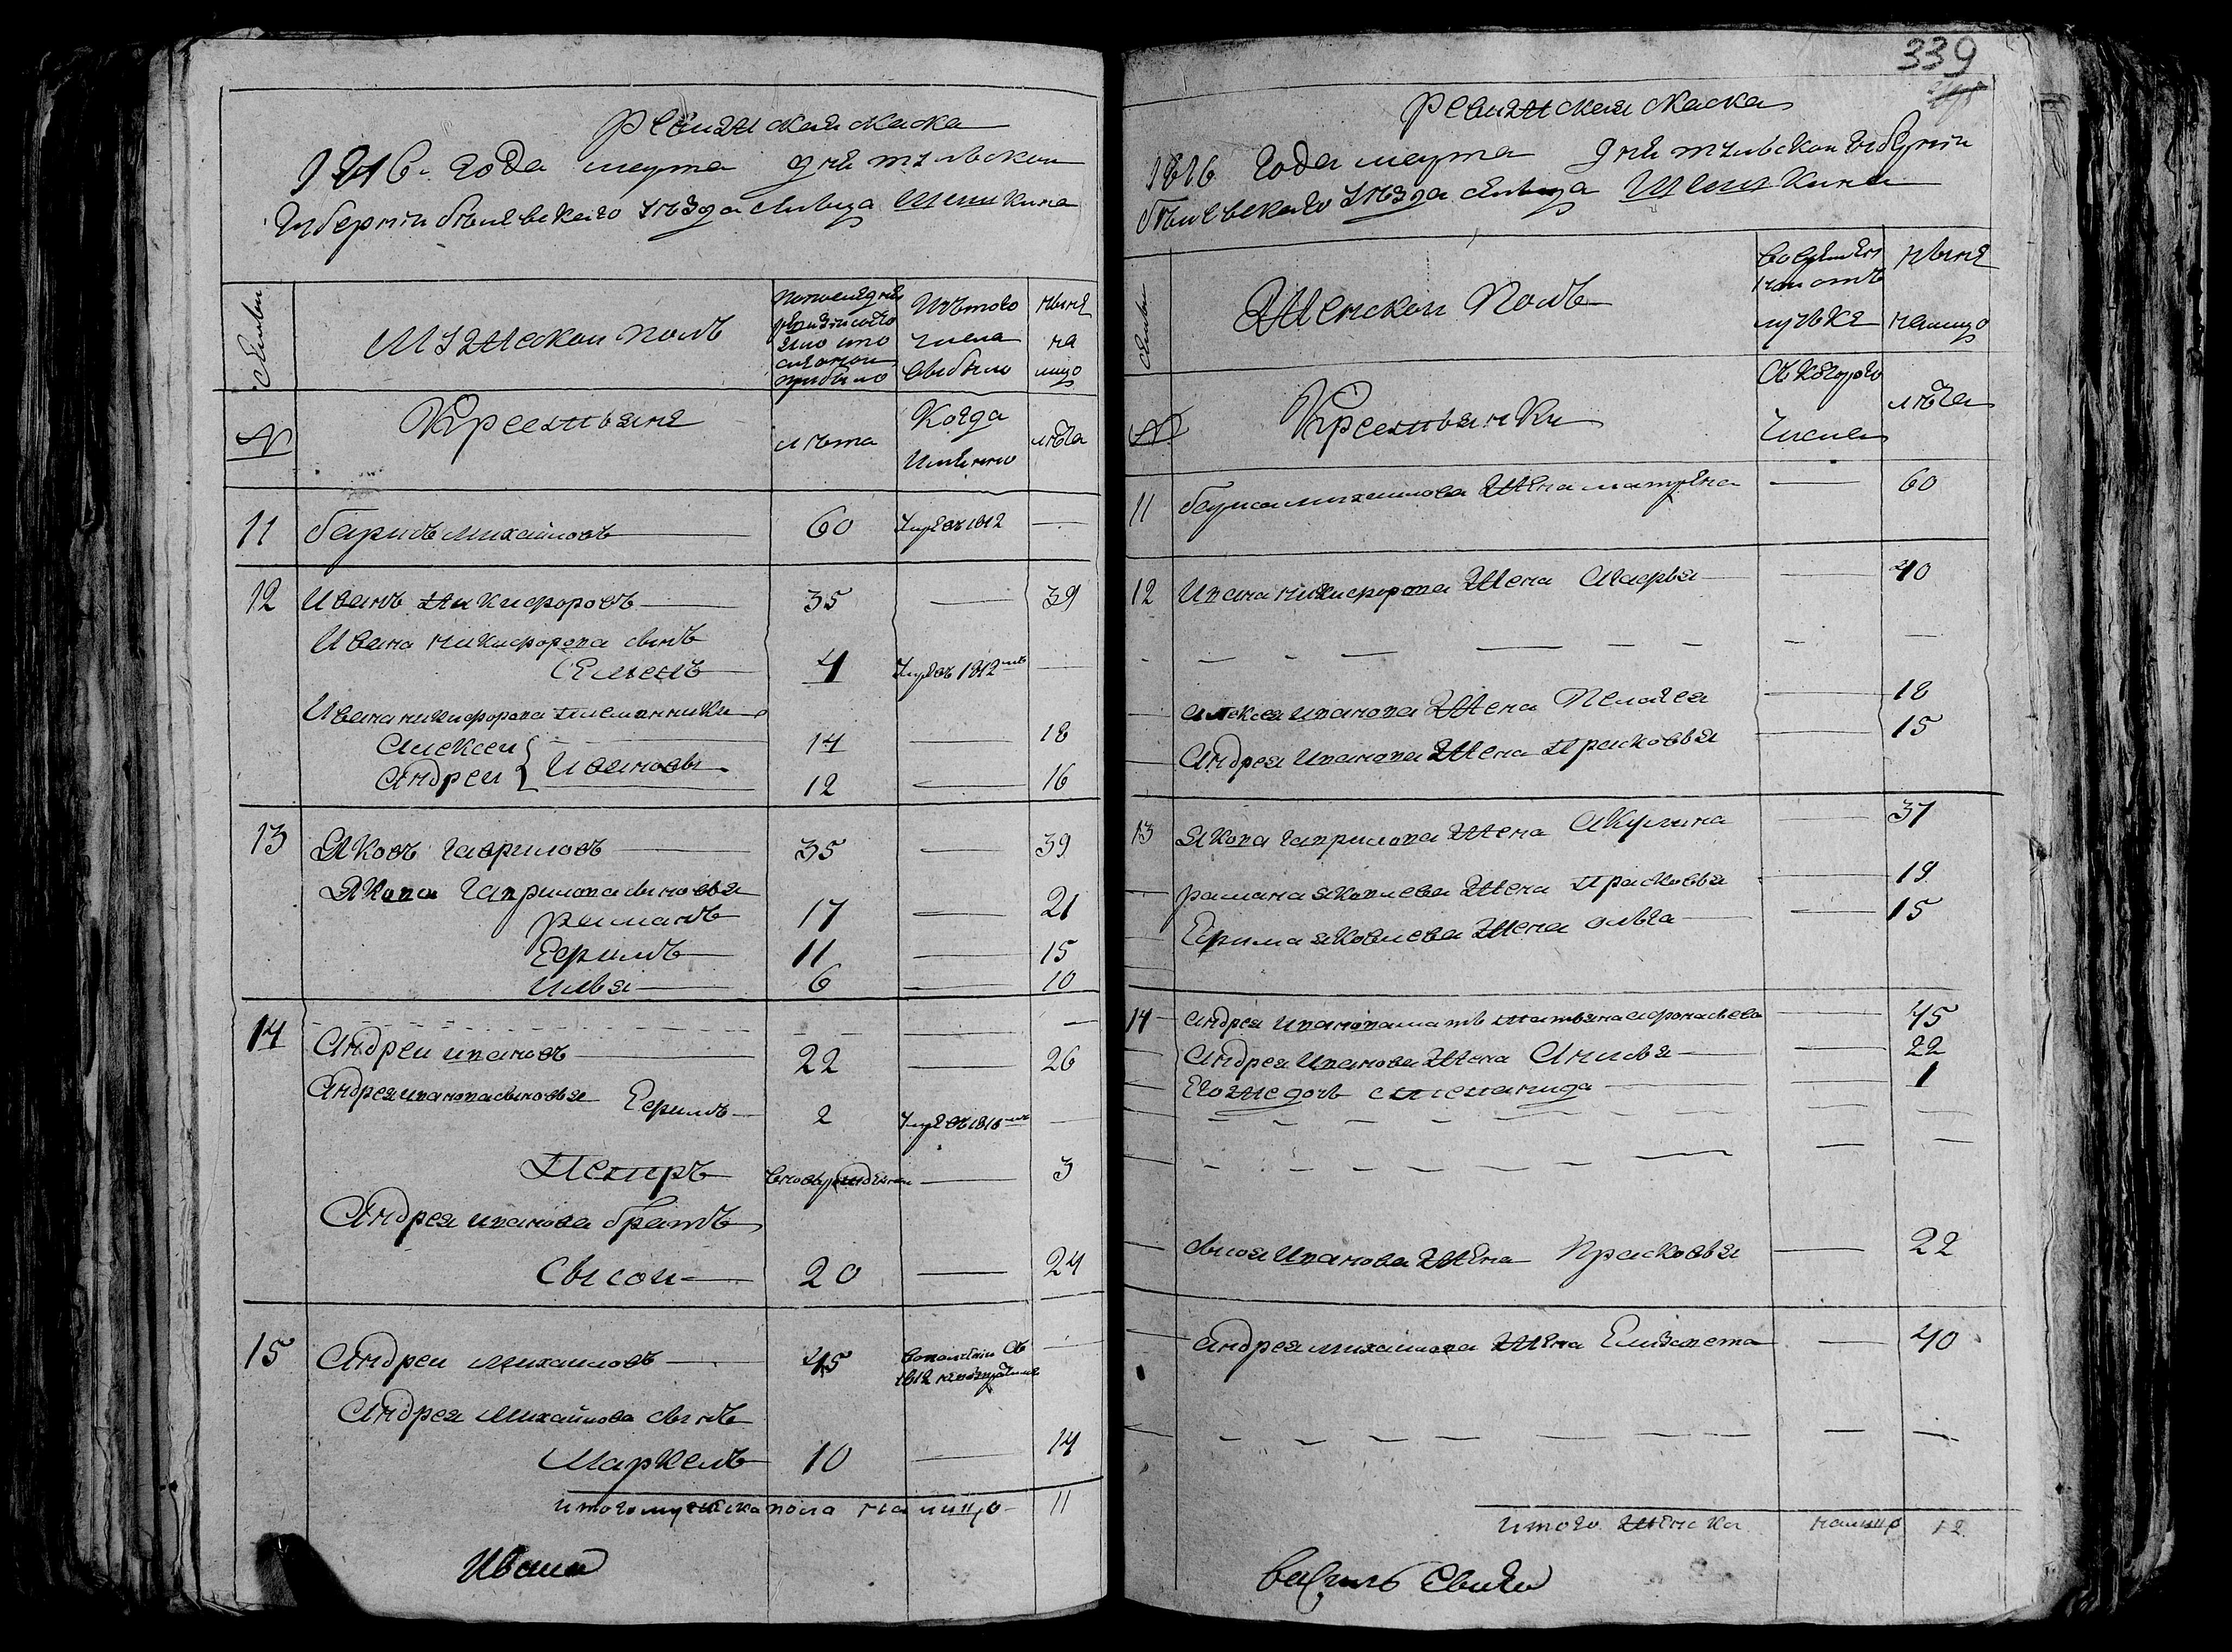 Ревижская скаска
1816 года марта дня тульской
губернии белевскаго уезда сельца Шишкина
семьи
Мужескои полъ
по последней ревизии состояло и после оной прибыло
Изъ того числа выбыло
ныне на лицо
№
Крестьяне
лета
Когда Имянно
лета
11 Гарилъ михайловъ 60 Умре въ 1812 —
12 Иванъ Никифоровъ 35 — 39
Ивана никифорова сынъ
Семенъ 4 Умре въ 1812 мъ —
Ивана никифорова племянники
Алексеи 14 — 18
Андреи } Ивановы 12 — 16
13 Яковъ гавриловъ 35 — 39
Якова гаврилова сыновья
романъ 17 — 21
Ефимъ 11 — 15
Илья 6 — 10
14
Андреи ивановъ 22 — 26
Андрея иванова сыновья Ефимъ 2 Умре въ 1816 мъ —
Петръ вновьрожденъ — 3
Андрея иванова братъ
Сысои 20 — 24
15 Андреи михаиловъ 45 въ 1812 —
Андрея Михайлова сынъ
Маркелъ 10 — 14
итого мужеска пола на лицо 11
Иванъ
339
Ревижская скаска
1816 года марта дня тульскои губернии
белевскаго уезда сельца Шишкина
семьи
Женскои полъ
во временной отлучке
ныне на лицо
№
Крестьянки
Съ которого числа
лета
11 михаилова жена матрена — 60
12 Ивана никифорова жена Марья — 40
алексея иванова жена Пелагея — 18
Андрея иванова жена Прасковья — 15
13 Якова гаврилова жена Акулина — 37
рамана яковлева жена Прасковья — 19
Ефима яковлева жена ольга — 15
14 андрея иванова мать татьяна афонасьева — 45
Андрея иванова жена Анисья — 22
Его же дочь степанида — 1
сысоя иванова жена Прасковья — 22
андрея михаилова жена Елизавета — 40
итого женска налицо 12